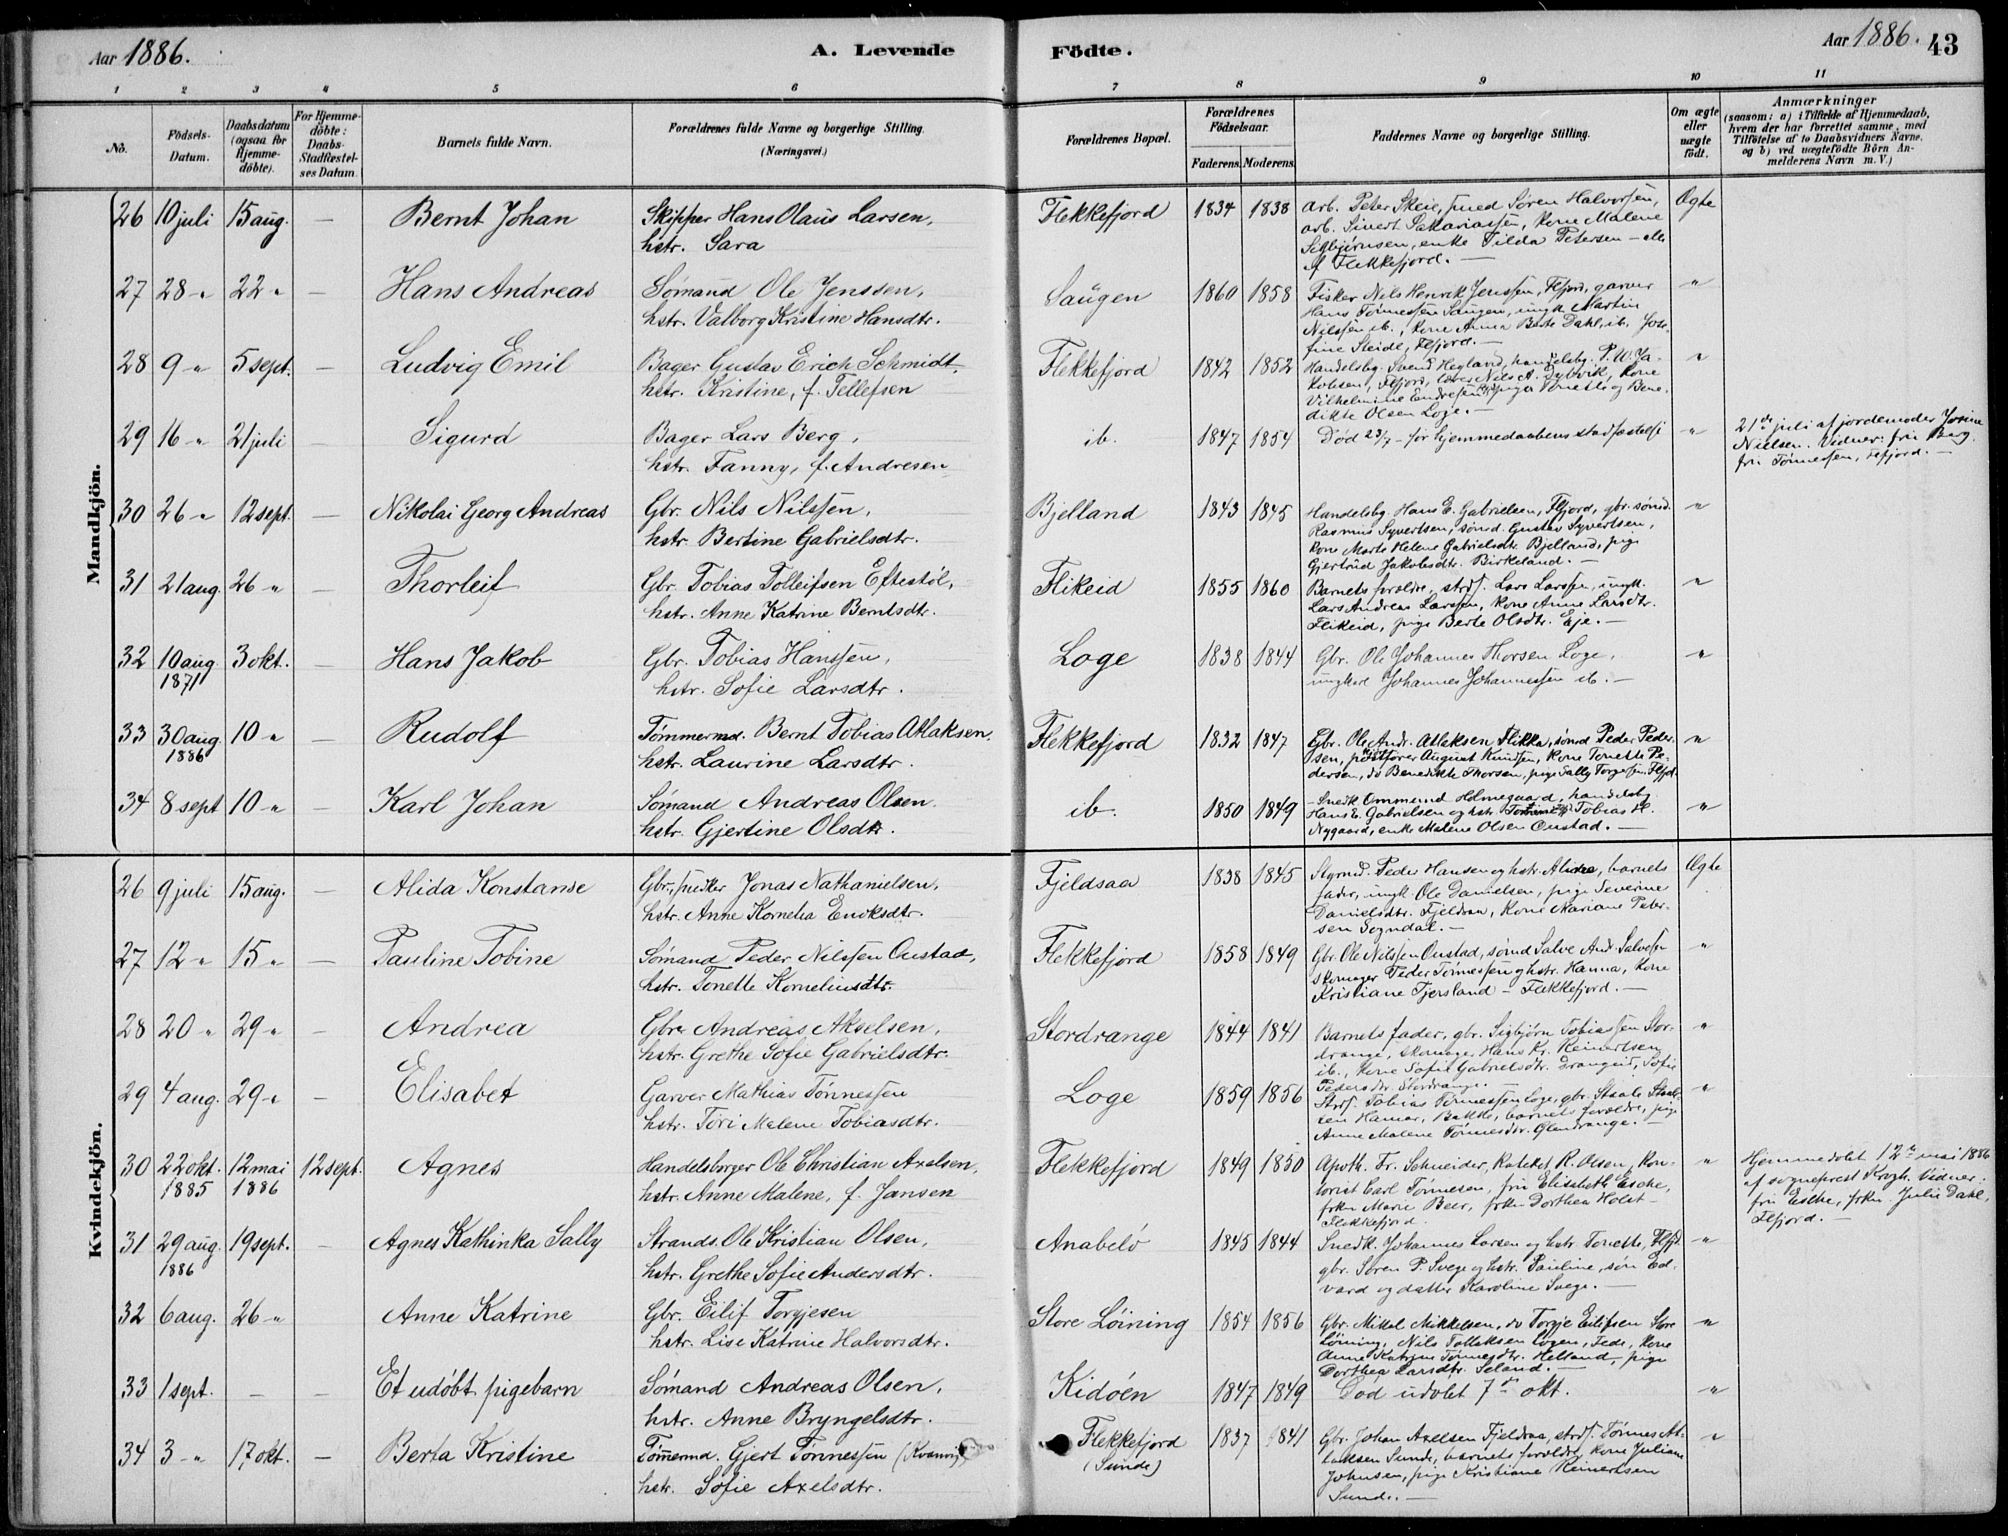 Aar 1886.
A. Levende Födte.
Aar 1886. 43
1 2 3 4 5 6 7 8 9 10 11
No.
Födsels-Datum.
Daabsdatum (ogsaa for Hjemme-döbte).
For Hjemme-döbte: Daabs-Stadfæstel-ses Datum.
Barnets fulde Navn.
Forældrenes fulde Navne og borgerlige Stilling. (Næringsvei.)
Forældrenes Bopæl.
Forældrenes Födselsaar.
Faderens. Moderens.
Faddernes Navne og borgerlige Stilling.
Om ægte eller uægte födt.
Anmærkninger
(saasom: a) i Tilfælde af Hjemmedaab, hvem der har forrettet samme, med Tilföielse af to Daabsvidners Navne, og b) ved uægtefödte Börn Anmelderens Navn m. V.)
Mandkjön.
26 10 juli 15 aug. — Bernt Johan Skipper Hans Olaus Larsen, Flekkefjord 1834 1838 arb. Peter Skeie, smed Søren Halvorsen, Ægte
hstr. Sara arb. Sivert Sakariassen, kone Malene
Sigbjørnsen, enke Tilda Petersen — alle
af Flekkefjord. —
27 28 " 22 " — Hans Andreas Sømand Ole Jenssen, Saugen 1860 1858 Fisker Nils Henrik Jenssen, Flfjord, garver "
hstr. Valborg Kristine Hansdtr. Hans Tønnessen Saugen, ungk. Martin
Nilssen ib., kone Anna Berte Dahl, ib.
28 9 " 5 sept. — Ludvig Emil Bager Gustav Erich Schmidt, Flekkefjord 1842 1852 Handelsbg. Svend Hegland, handelsbg. P. W. Ja- "
hstr. Kristine, f. Tellefsen kobsen, Flfjord, lærer Nils A. Dybvik, kone
Vilhelmine Endresen, piger Tonette og Bene-
dikte Olsen Loge. —
29 16 " 21 juli — Sigurd Bager Lars Berg, ib. 1847 1854 Død 23/7 — før hjemmedaabens stadfæstelse " 21de juli af jordemoder Josine
hstr. Fanny, f. Andresen Nielsen. Vidner: fru Berg,
fru Tønnessen, Flfjord. —
30 26 " 12 sept. — Nikolai Georg Andreas Gbr. Nils Nilssen, Bjelland 1843 1845 Handelsbg. Hans E. Gabrielsen, Flfjord, gbr. sømd. "
hstr. Bertine Gabrielsdtr. Rasmus Syvertsen, sømd. Gustav Syvertsen,
kone Marte Helene Gabrielsdtr. Bjelland, pige
Gjertrud Jakobsdtr. Birkeland. —
31 21 aug. 26 " — Thorleif Gbr. Tobias Tolleifsen Eftestøl, Flikeid 1855 1860 Barnets forældre, strds. Lars Larssen, ungk. "
hstr. Anne Katrine Berntsdtr. Lars Andreas Larssen, kone Anne Larsdtr.
Flikeid, pige Berte Olsdtr. Eje. —
32 10 aug. 3 okt. — Hans Jakob Gbr. Tobias Hanssen, Loge 1838 1844 Gbr. Ole Johannes Thorsen Loge, "
1871 hstr. Sofie Larsdtr. ungkarl Johannes Johannessen ib. —
33 30 aug. 10 " — Rudolf Tømmermd. Bernt Tobias Atlaksen, Flekkefjord 1832 1847 Gbr. Ole Andr. Atlaksen Flikka, sømd Peder Peder- "
1886 hstr. Laurine Larsdtr. sen, postfører August Knudsen, kone Tonette Pe-
dersen, do Benedikte Thorsen, pige Sally Torgersen, Flfjd.
34 8 sept 10 " — Karl Johan Sømand Andreas Olsen. ib. 1850 1849 Snedk. Ommund Holmegaard, handelsbg. "
hstr. Gjertine Olsdtr. Hans E. Gabrielsen og hstr. Tobias H.
Nygaard, enke Malene Olsen Onstad. —
Kvindekjön.
26 9 juli 15 aug. — Alida Konstanse Gbr., snedker Jonas Nathanielsen, Fjeldsaa 1838 1845 Styrmd. Peder Hansen og hstr. Aline, barnets Ægte
hstr. Anne Kornelia Eriksdtr. fader, ungk. Ole Danielsen, pige Severine
Danielsdtr. Fjeldsaa, kone Mariane Peter-
sen Sogndal. —
27 12 " 15 " — Pauline Tobine Sømand Peder Nilssen Onstad, Flekkefjord 1858 1849 Gbr. Ole Nilssen Onstad, sømd Salve And. Salvesen "
hstr. Tonette Korneliusdtr. skomager Peder Tønnessen og hstr. Hanna, kone
Kristiane Tjersland — Flekkefjord. —
28 20 " 29 " — Andrea Gbr. Andreas Akselsen, Stordrange 1844 1841 Barnets fader, gbr. Sigbjørn Tobiassen Stor- "
hstr. Grethe Sofie Gabrielsdtr. drange, skomager Hans Kr. Reinertsen
ib., kone Sofie Gabrielsdtr. Drangeid, Sofie
Pedersdtr. Stordrange.
29 4 aug. 29 " — Elisabet Garver Mathias Tønnessen Loge 1859 1856 Strds. Tobias Tønnessen Loge, gbr. Staale Staal- "
hstr. Tori Malene Tobiasdtr. sen Hamar, Bakke, barnets forældre, pige
Anne Malene Tønnesdtr. Glendrange. —
30 22 okt. 12 mai 12 sept. Agnes Handelsborger Ole Christian Axelsen, Flekkefjord 1849 1850 Apoth. Fr. Schneider, kateket R. Olsen, kon- " Hjemmedøbt 12te mai 1886
1885 1886 hstr. Anne Malene, f. Jansen torist Carl Tønnesen, fru Elisabeth Esche, af sogneprest Krogh. Vidner:
frkn Marie Beer, frkn Dorthea Holst — fru Esche, frkn. Julie Dahl,
Flekkefjord. Flfjord. —
31 29 aug. 19 sept. — Agnes Kathinka Sally Strands. Ole Kristian Olsen, Anabelø 1845 1844 Snedk. Johannes Larsen og hstr. Tonette, Flfjd. "
1886 hstr. Grethe Sofie Andersdtr. gbr. Søren P. Svege og hstr. Pauline, søn Ed-
vard og datter Karoline Svege. —
32 6 aug. 26 " — Anne Katrine Gbr. Eilif Torgjesen Store Løining 1854 1856 Gbr. Mikal Mikkelsen, do Torgje Eilifsen Store "
hstr. Lise Katrine Halvorsdtr. Løining, Nils Tollaksen Logen, Fede, kone
Anne Katrine Tønnesdtr. Helland, pige
Dorthea Larsdtr. Seland. —
33 1 sept. — — Et udøbt pigebarn Sømand Andreas Olsen, Kidøen 1847 1849 Død udøbt 7de okt. "
hstr. Anne Bryngelsdtr.
34 3 " 17 okt. — Berta Kristine Tømmermd. Gjert Tønnessen Flekkefjord 1837 1841 Gbr. Johan Axelsen Fjeldsaa, strds. Tønnes At- "
hstr. Sofie Axelsdtr. (Sunde) laksen Sunde, barnets forældre, kone Juliane
Johnsen, pige Kristiane Reinertsen
Sunde. —